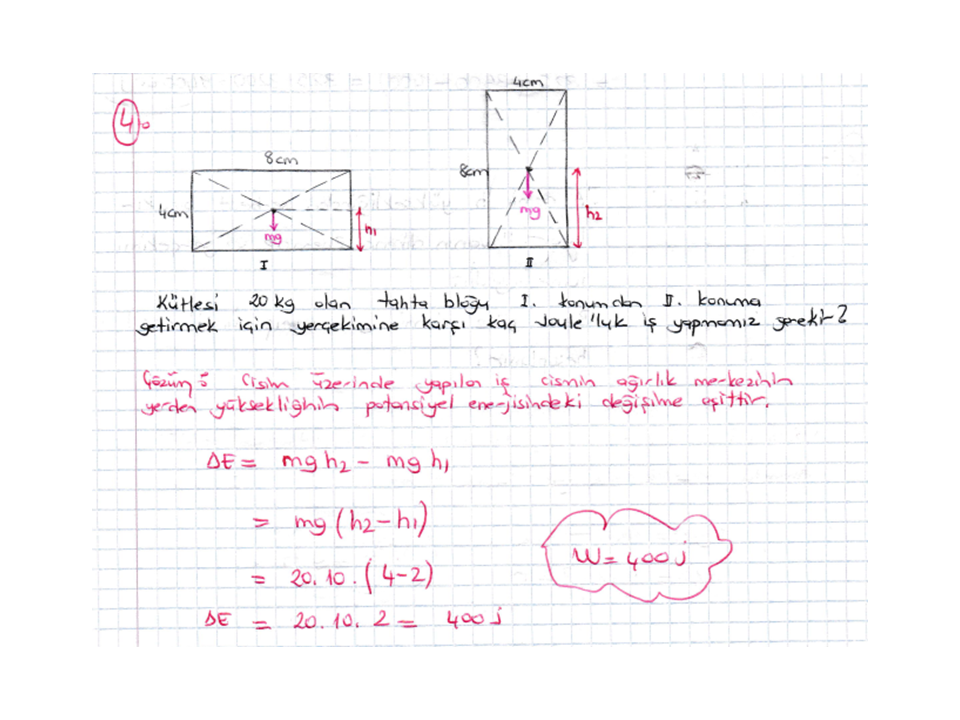 4.
4cm
8cm
8cm
4cm
mg
h2
mg
h1
I
II
Kütlesi 20 kg olan tahta bloğu I. konumdan II. konuma
getirmek için yerçekimine karşı kaç Joule'luk iş yapmamız gerekir?
Çözüm: Cisim üzerinde yapılan iş cismin ağırlık merkezinin
yerden yüksekliğinin potansiyel enerjisindeki değişime eşittir.
ΔE = mgh2 - mgh1
= mg(h2-h1)
= 20.10.(4-2)
W=400j
ΔE = 20.10.2 = 400j